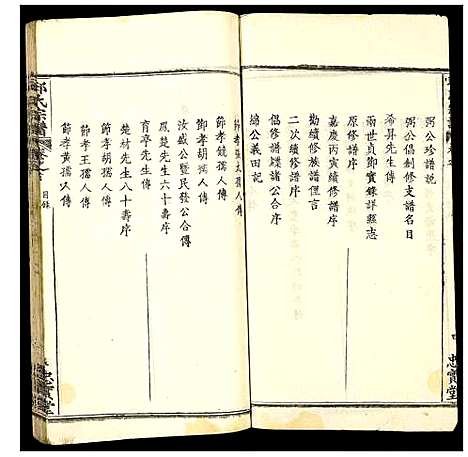 弼公珍譜說
弼公倡創修支譜名目
希昇先生傳
兩世貞節實錄詳縣志
原修譜序
嘉慶丙寅續修譜序
勸續修族譜俚言
二次續修譜序
倡修譜牒諸公合序
總公義田記
節孝張孺人傳
節孝魏孺人傳
節孝胡孺人傳
汝盛公暨民發公合傳
鳳楚先生六十壽序
育亭先生傳
楚材先生八十壽序
節孝胡孺人傳
節孝王孺人傳
節孝黃孺人傳
目錄
忠實堂
忠實堂